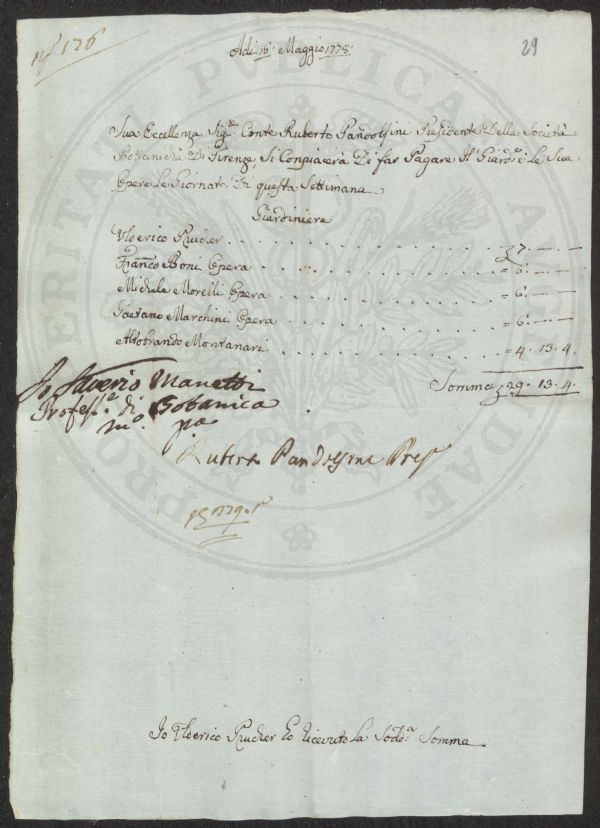 nº 126
29
Adi 16 Maggio 1778
Sua Eccellenza Sig.e Conte Ruberto Pandolfini Presidente Della Società
Bottanicha Di Firenze, Si Conpiacerà Di far Pagare Al Giard.re e Le Sua
Opere Le Giornate Di questa Settimana
Giardiniere
Ulderico Prucher . . . . . . . . . . 7 . — . —
Franco Boni Opera . . . . . . . . . . = 6 . — . —
Michele Morelli Opera . . . . . . . . . . = 6 . — . —
Gaetano Marchini Opera . . . . . . . . . . = 6 . — . —
Aldobrando Montanari . . . . . . . . . . = 4 . 13 . 4
Somma 29 . 13 . 4
Io Saverio Manetti
Profess.e di Bottanica
mº pa
Ruberto Pandolfini Pres
Io Ulderico Prucher Ho Ricevuto La Sodª Somma
PVBLICAE